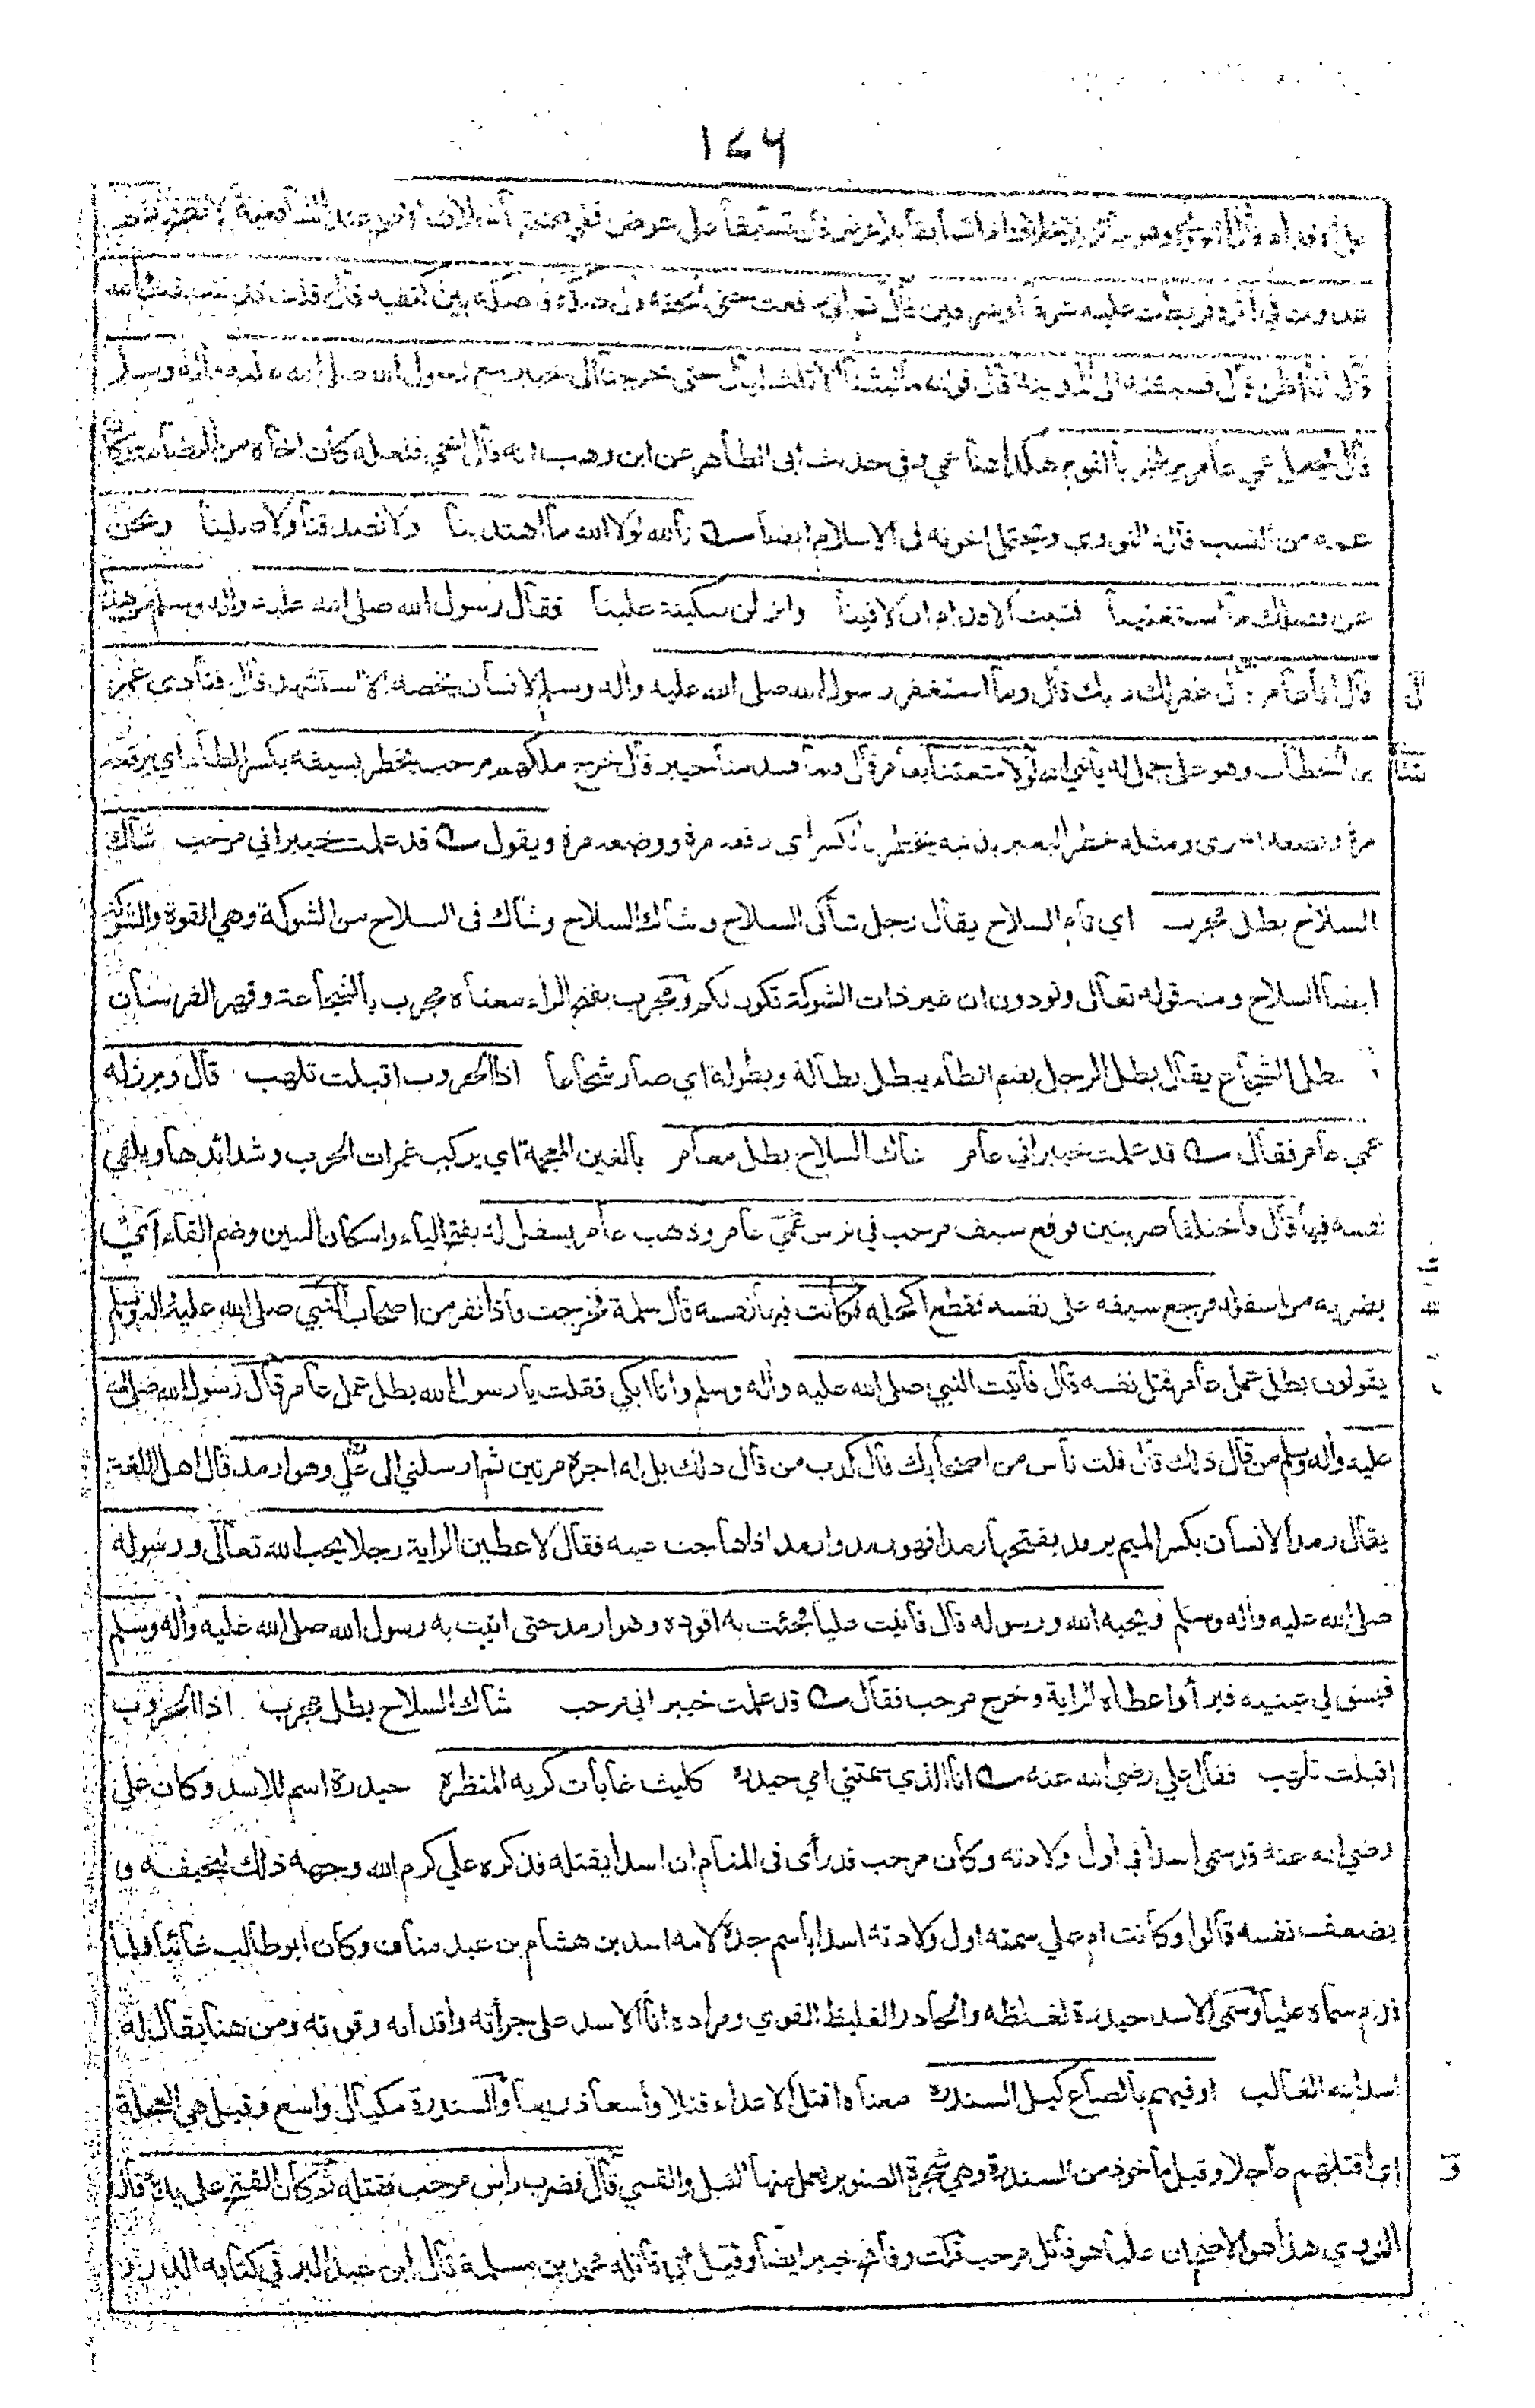 ١٤٦
قال فسبقته الى المدينة قال فوالله ما لبثنا الا ثلث ليال حتى خرجنا الى خيبر مع رسول الله صلى الله عليه واله وسلم
قال فجعل عمي عامر يرتجز بالقوم هكذا هنا عمي وفي حديث ابى الطاهر عن ابن وهب انه قال اخي فلعله كان اخاه من الرضاعة وكان
عمه من النسب قاله النووي ويحتمل اخوته فى الاسلام ايضا تالله لولا الله ما اهتدينا ولا تصدقنا ولا صلينا ونحن
عن فضلك ما استغنينا فثبت الاقدام ان لاقينا وانزلن سكينة علينا فقال رسول الله صلى الله عليه واله وسلم من هذا
قال انا عامر قال غفر لك ربك قال وما استغفر رسول الله صلى الله عليه واله وسلم لانسان يخصه الا استشهد قال فنادى عمر
بن الخطاب وهو على جمل له يا نبي الله لولا متعتنا بعامر قال فلما قدمنا خيبر قال خرج ملكهم مرحب يخطر بسيفه بكسر الطاء اي يرفعه
مرة ويضعه اخرى ومثله خطر البعير بذنبه يخطر بالكسر اى رفعه مرة ووضعه مرة ويقول قد علمت خيبر اني مرحب شاك
السلاح بطل مجرب اي تام السلاح يقال رجل شاكى السلاح وشاك السلاح وشاك فى السلاح من الشوكة وهي القوة والشوكة
ايضا السلاح ومنه قوله تعالى وتودون ان غير ذات الشوكة تكون لكم ومجرب بفتح الراء معناه مجرب بالشجاعة وقهر الفرسان
بطل الشجاع يقال بطل الرجل بضم الطاء يبطل بطالة وبطولة اي صار شجاعا اذا الحروب اقبلت تلهب قال وبرز له
عمي عامر فقال قد علمت خيبر اني عامر شاك السلاح بطل مغامر بالغين المعجمة اي يركب غمرات الحرب وشدائدها ويلقي
نفسه فيها قال واختلفا ضربتين فوقع سيف مرحب في ترس عمي عامر وذهب عامر يسفل له بفتح الياء واسكان السين وضم الفاء اي
يضربه من اسفله فرجع سيفه على نفسه فقطع اكحله فكانت فيها نفسه قال سلمة فخرجت واذا نفر من اصحاب النبي صلى الله عليه واله وسلم
يقولون بطل عمل عامر قتل نفسه قال فاتيت النبي صلى الله عليه واله وسلم وانا ابكي فقلت يا رسول الله بطل عمل عامر قال رسول الله صلى الله
عليه واله وسلم من قال ذلك قال قلت ناس من اصحابك قال كذب من قال ذلك بل له اجره مرتين ثم ارسلني الى علي وهو ارمد قال اهل اللغة
يقال رمد الانسان بكسر الميم يرمد بفتحها رمدا فهو رمد وارمد اذا هاجت عينه فقال لاعطين الراية رجلا يحب الله تعالى ورسوله
صلى الله عليه واله وسلم ويحبه الله ورسوله قال فاتيت عليا فجئت به اقوده وهو ارمد حتى اتيت به رسول الله صلى الله عليه واله وسلم
فبسق في عينيه فبرأ واعطاه الراية وخرج مرحب فقال قد علمت خيبر اني مرحب شاك السلاح بطل مجرب اذا الحروب
اقبلت تلهب فقال علي رضي الله عنه انا الذي سمتني امي حيدره كليث غابات كريه المنظره حيدرة اسم للاسد وكان علي
رضي الله عنه قد سمي اسدا في اول ولادته وكان مرحب قد رأى فى المنام ان اسدا يقتله فذكره علي كرم الله وجهه ذلك ليخيفه و
يضعف نفسه قالوا وكانت ام علي سمته اول ولادته اسدا باسم جده لامه اسد بن هشام بن عبد مناف وكان ابو طالب غائبا فلما
قدم سماه عليا وسمي الاسد حيدرة لغلظه والحادر الغليظ القوي ومراده انا الاسد على جرأته واقدامه وقوته ومن هنا يقال له
اسد الله الغالب اوفيهم بالصاع كيل السندره معناه اقتل الاعداء قتلا واسعا ذريعا والسندرة مكيال واسع وقيل هي العجلة
اي اقتلهم عاجلا وقيل ماخوذ من السندرة وهي شجرة الصنوبر يعمل منها النبل والقسي قال فضرب رأس مرحب فقتله ثم كان الفتح على يديه قال
النووي هذا هو الاصح ان عليا هو قاتل مرحب وقيل ان قاتله محمد بن مسلمة قال ابن عبد البر في كتابه الدرر